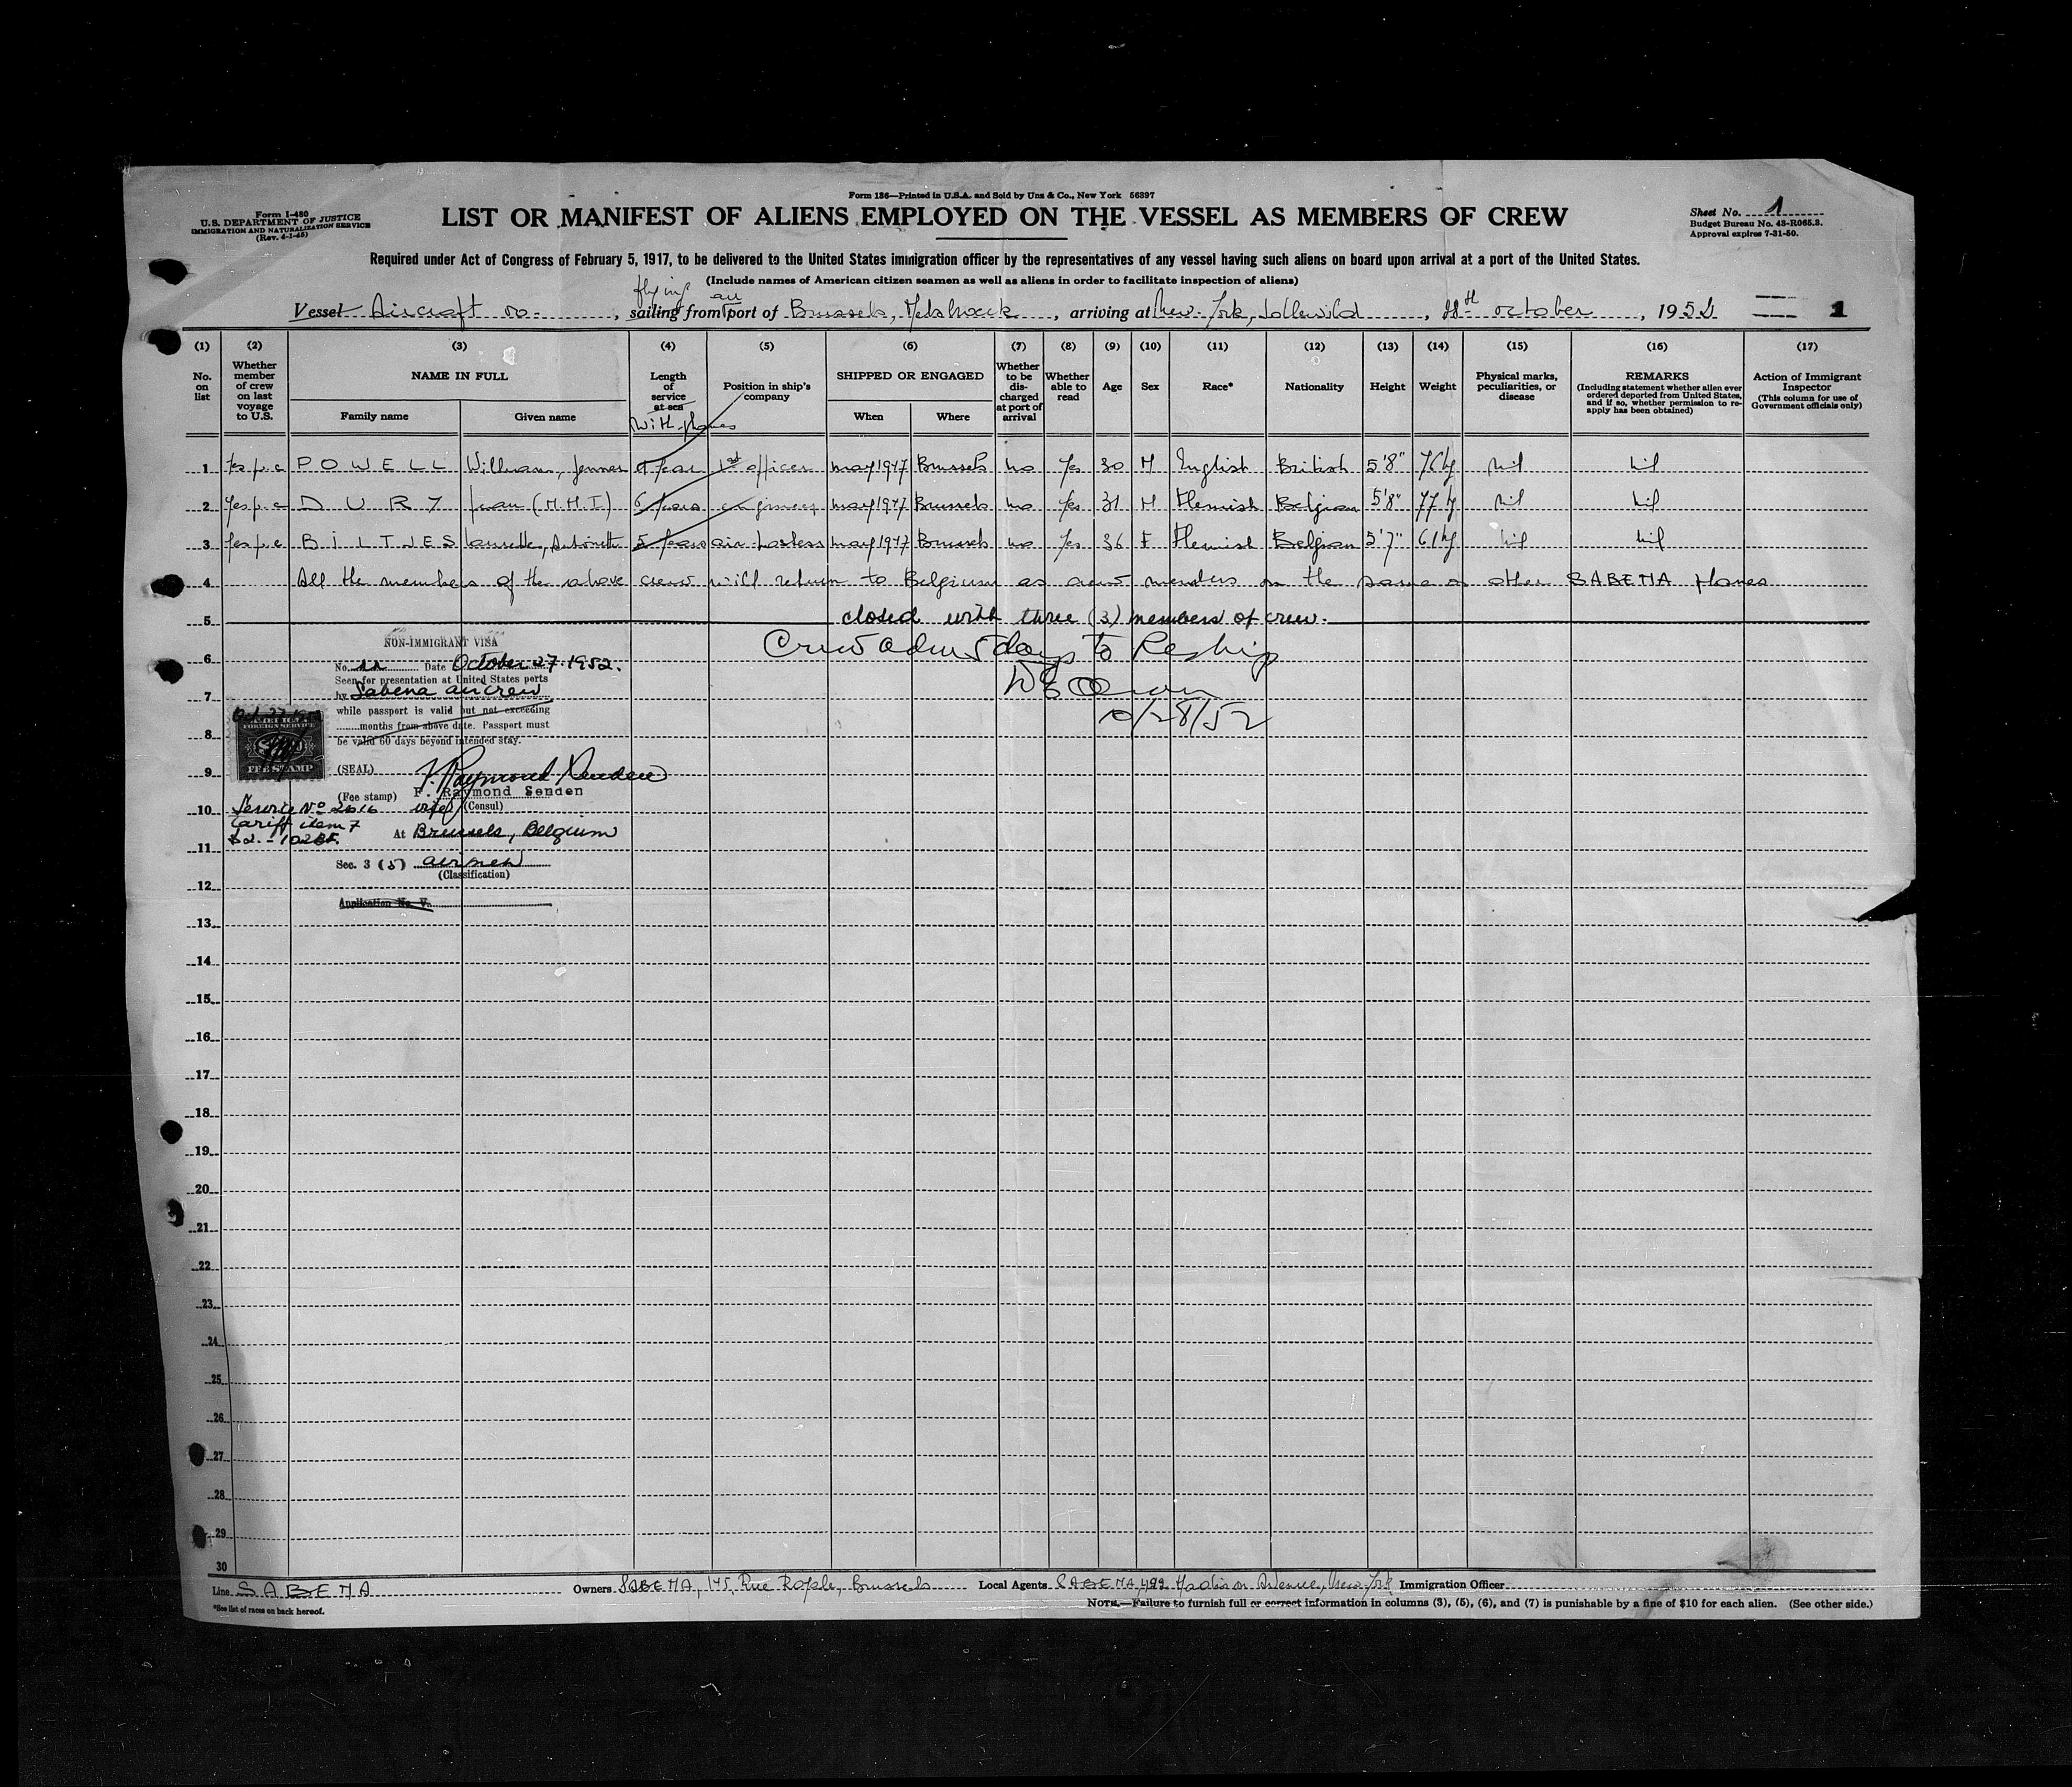 Form 136—Printed in U.S.A. and Sold by Unz & Co., New York 56897
Form I-480
U.S. DEPARTMENT OF JUSTICE
IMMIGRATION AND NATURALIZATION SERVICE
(Rev. 4-1-45)
LIST OR MANIFEST OF ALIENS EMPLOYED ON THE VESSEL AS MEMBERS OF CREW
Sheet No. 1
Budget Bureau No. 43-R065.3.
Approval expires 7-31-50.
Required under Act of Congress of February 5, 1917, to be delivered to the United States immigration officer by the representatives of any vessel having such aliens on board upon arrival at a port of the United States.
(Include names of American citizen seamen as well as aliens in order to facilitate inspection of aliens)
flying air
Vessel Aircraft , sailing from port of Brussels, Melsbroeck , arriving at New-York, Idlewild , 28th october , 1952 1
(1) (2) (3) (4) (5) (6) (7) (8) (9) (10) (11) (12) (13) (14) (15) (16) (17)
No. on list
Whether member of crew on last voyage to U.S.
NAME IN FULL
Family name
Given name
Length of service at sea
With planes
Position in ship's company
SHIPPED OR ENGAGED
When
Where
Whether to be discharged at port of arrival
Whether able to read
Age
Sex
Race*
Nationality
Height
Weight
Physical marks, peculiarities, or disease
REMARKS
(Including statement whether alien ever ordered deported from United States, and if so, whether permission to reapply has been obtained)
Action of Immigrant Inspector
(This column for use of Government officials only)
1 Yes p.c POWELL William, year 1st officer may 1947 Brussels no Yes 30 M English British 5'8" 76 kg nil nil
2 Yes p.c DURY Jean (M.M.I) 6 years engineer may 1947 Brussels no Yes 31 M Flemish Belgian 5'8" 77 kg nil nil
3 Yes p.c BILTJES 5 years air-hostess may 1947 Brussels no Yes 36 F Flemish Belgian 5'7" 61 kg nil nil
4 All the members of the above crew will return to Belgium as crew members on the same or other SABENA planes
5 closed with three (3) members of crew.
NON-IMMIGRANT VISA
6 Crew adm 5 days to Reship
No. Date October 27.1952.
Seen for presentation at United States ports
7 by Sabena aircrew
while passport is valid but not exceeding
10/28/52
months from above date. Passport must
8 be valid 60 days beyond intended stay.
FOREIGN SERVICE
FEE STAMP
9 (SEAL)
(Fee stamp) F. Raymond Senden
10 Service No 2616 (Consul)
Tariff item 7
At Brussels, Belgium
11
Sec. 3 (5) airmen
(Classification)
12
Application No. V.
13
14
15
16
17
18
19
20
21
22
23
24
25
26
27
28
29
30
Line SABENA Owners SABENA, 145, Rue Royale, Brussels Local Agents SABENA, 422 Madison Avenue, New-York Immigration Officer
*See list of races on back hereof.
NOTE.—Failure to furnish full or correct information in columns (3), (5), (6), and (7) is punishable by a fine of $10 for each alien. (See other side.)